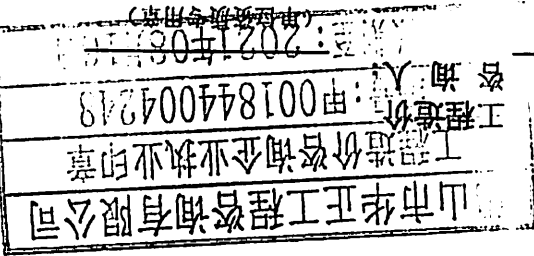 山市华正工程咨询有限公司
工程造价咨询企业执业印章
工程造价
咨询人
:甲001844004248
:2021年08
(单位资质专用章)